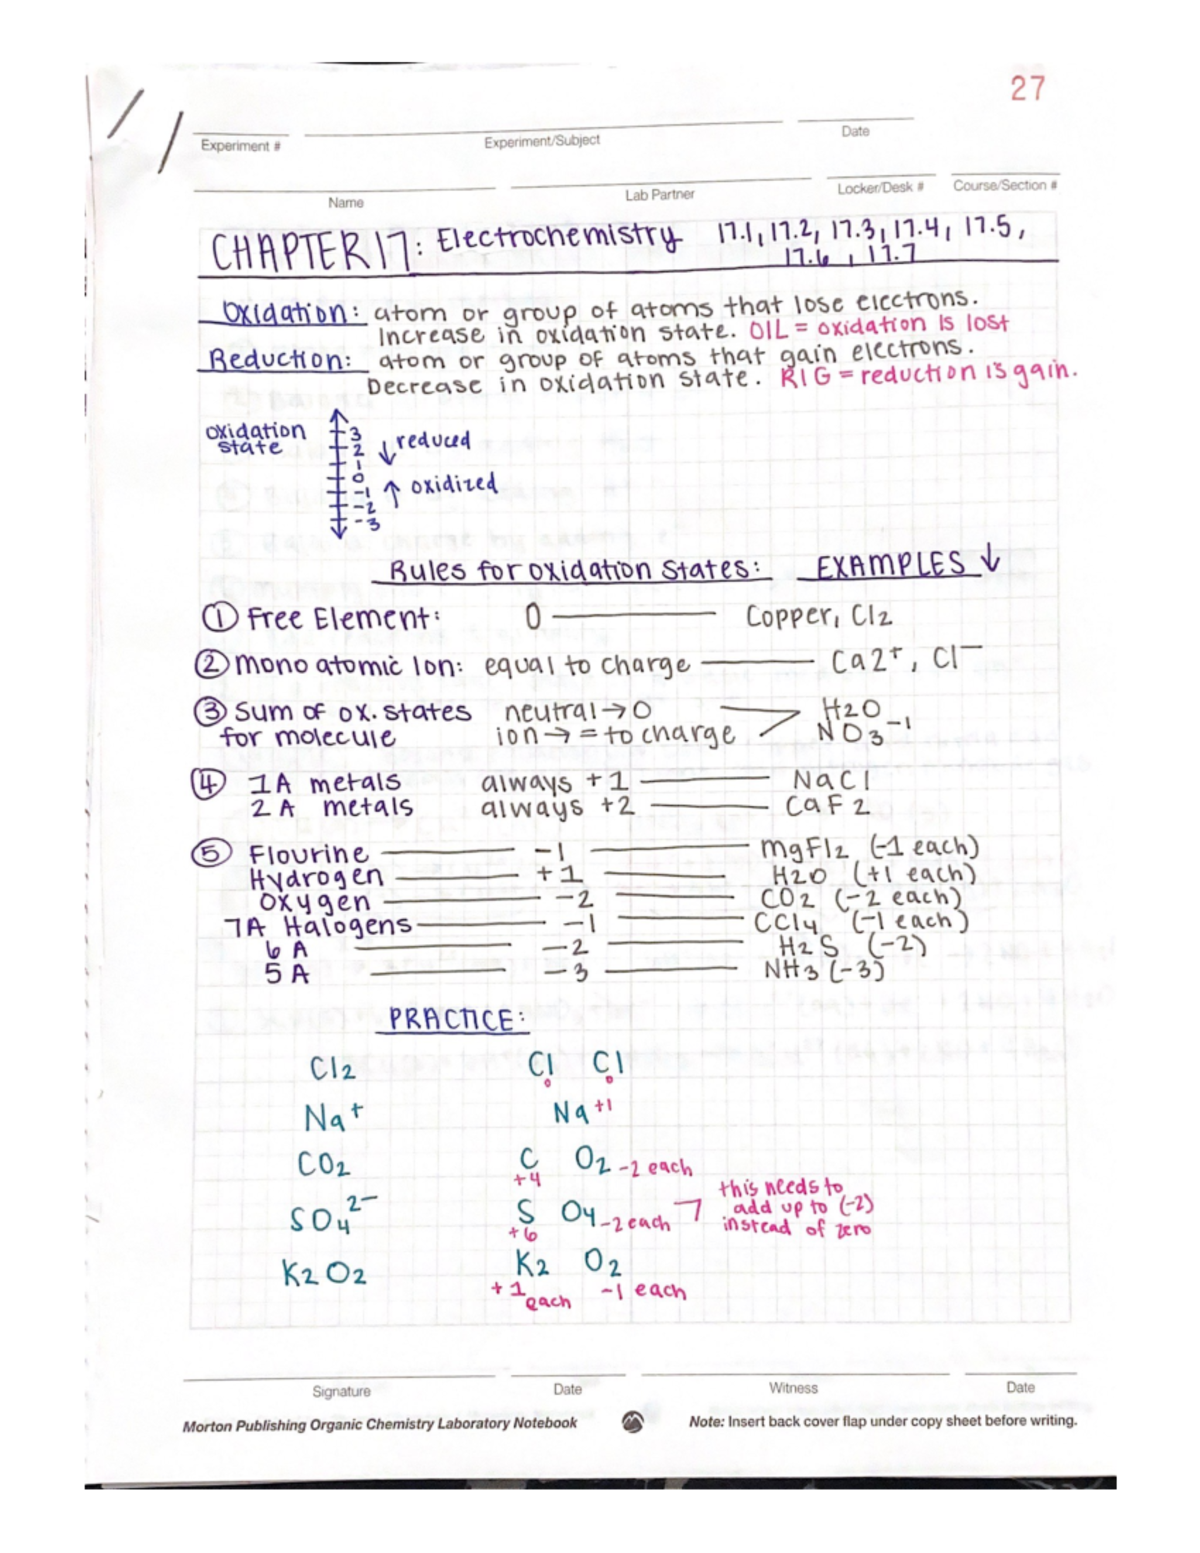 27
Experiment # Experiment/Subject Date
Name Lab Partner Locker/Desk # Course/Section #
CHAPTER 17: Electrochemistry 17.1, 17.2, 17.3, 17.4, 17.5,
17.6, 17.7
Oxidation: atom or group of atoms that lose electrons.
Increase in oxidation state. OIL = oxidation is lost
Reduction: atom or group of atoms that gain electrons.
Decrease in oxidation state. RIG = reduction is gain.
oxidation
state
3
2
1
0
-1
-2
-3
↓ reduced
↑ oxidized
Rules for oxidation states: EXAMPLES ↓
① Free Element: 0 Copper, Cl2
② mono atomic Ion: equal to charge Ca2+, Cl-
③ Sum of ox. states neutral → 0 H2O
for molecule ion → = to charge NO3 -1
④ 1A metals always +1 NaCl
2A metals always +2 CaF2
⑤ Flourine -1 mgFl2 (-1 each)
Hydrogen +1 H2O (+1 each)
oxygen -2 CO2 (-2 each)
7A Halogens -1 CCl4 (-1 each)
6A -2 H2S (-2)
5A -3 NH3 (-3)
PRACTICE:
Cl2 Cl Cl
0 0
Na+ Na +1
CO2 C O2 -2 each
+4
SO4 2- S O4 -2 each
+6
this needs to
add up to (-2)
instead of zero
K2O2 K2 O2
+1 each -1 each
Signature Date Witness Date
Morton Publishing Organic Chemistry Laboratory Notebook Note: Insert back cover flap under copy sheet before writing.